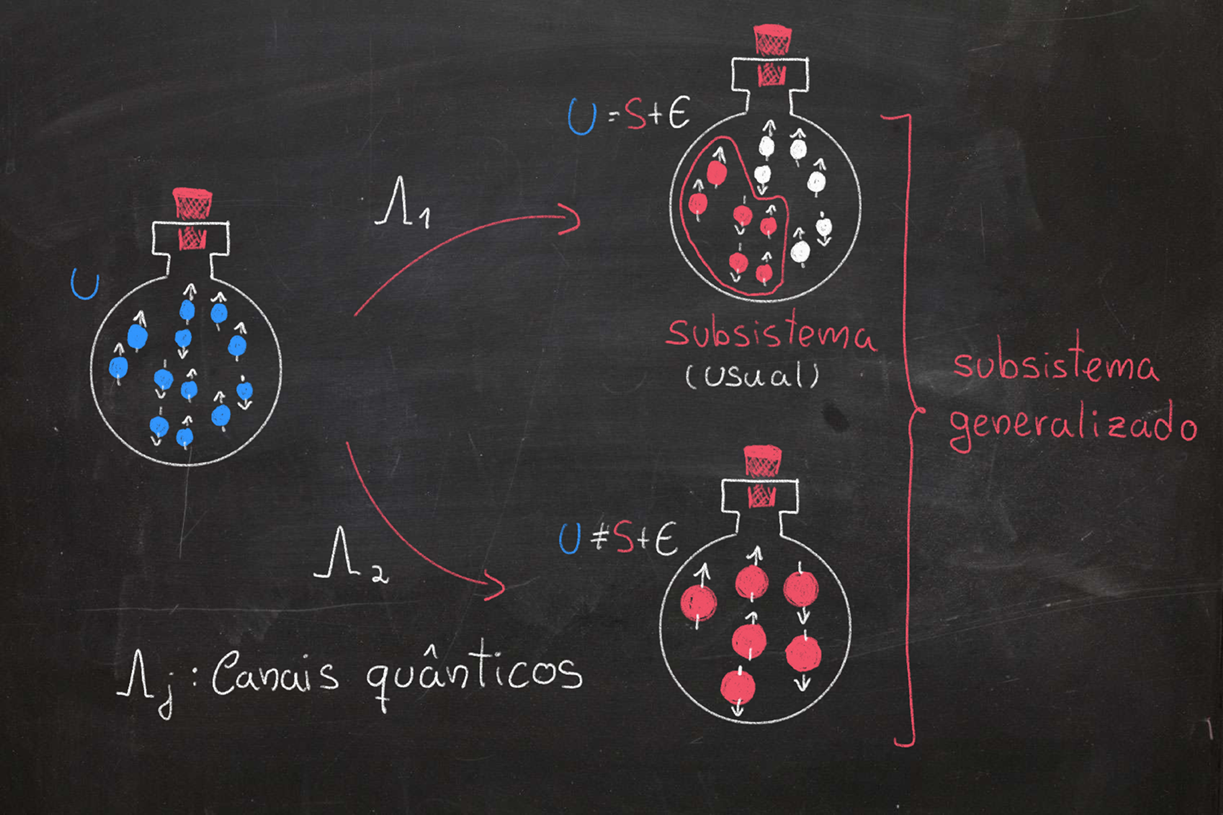 U
Λ1
U=S+E
subsistema
(usual)
subsistema
generalizado
Λ2
U≠S+E
Λj: Canais quânticos